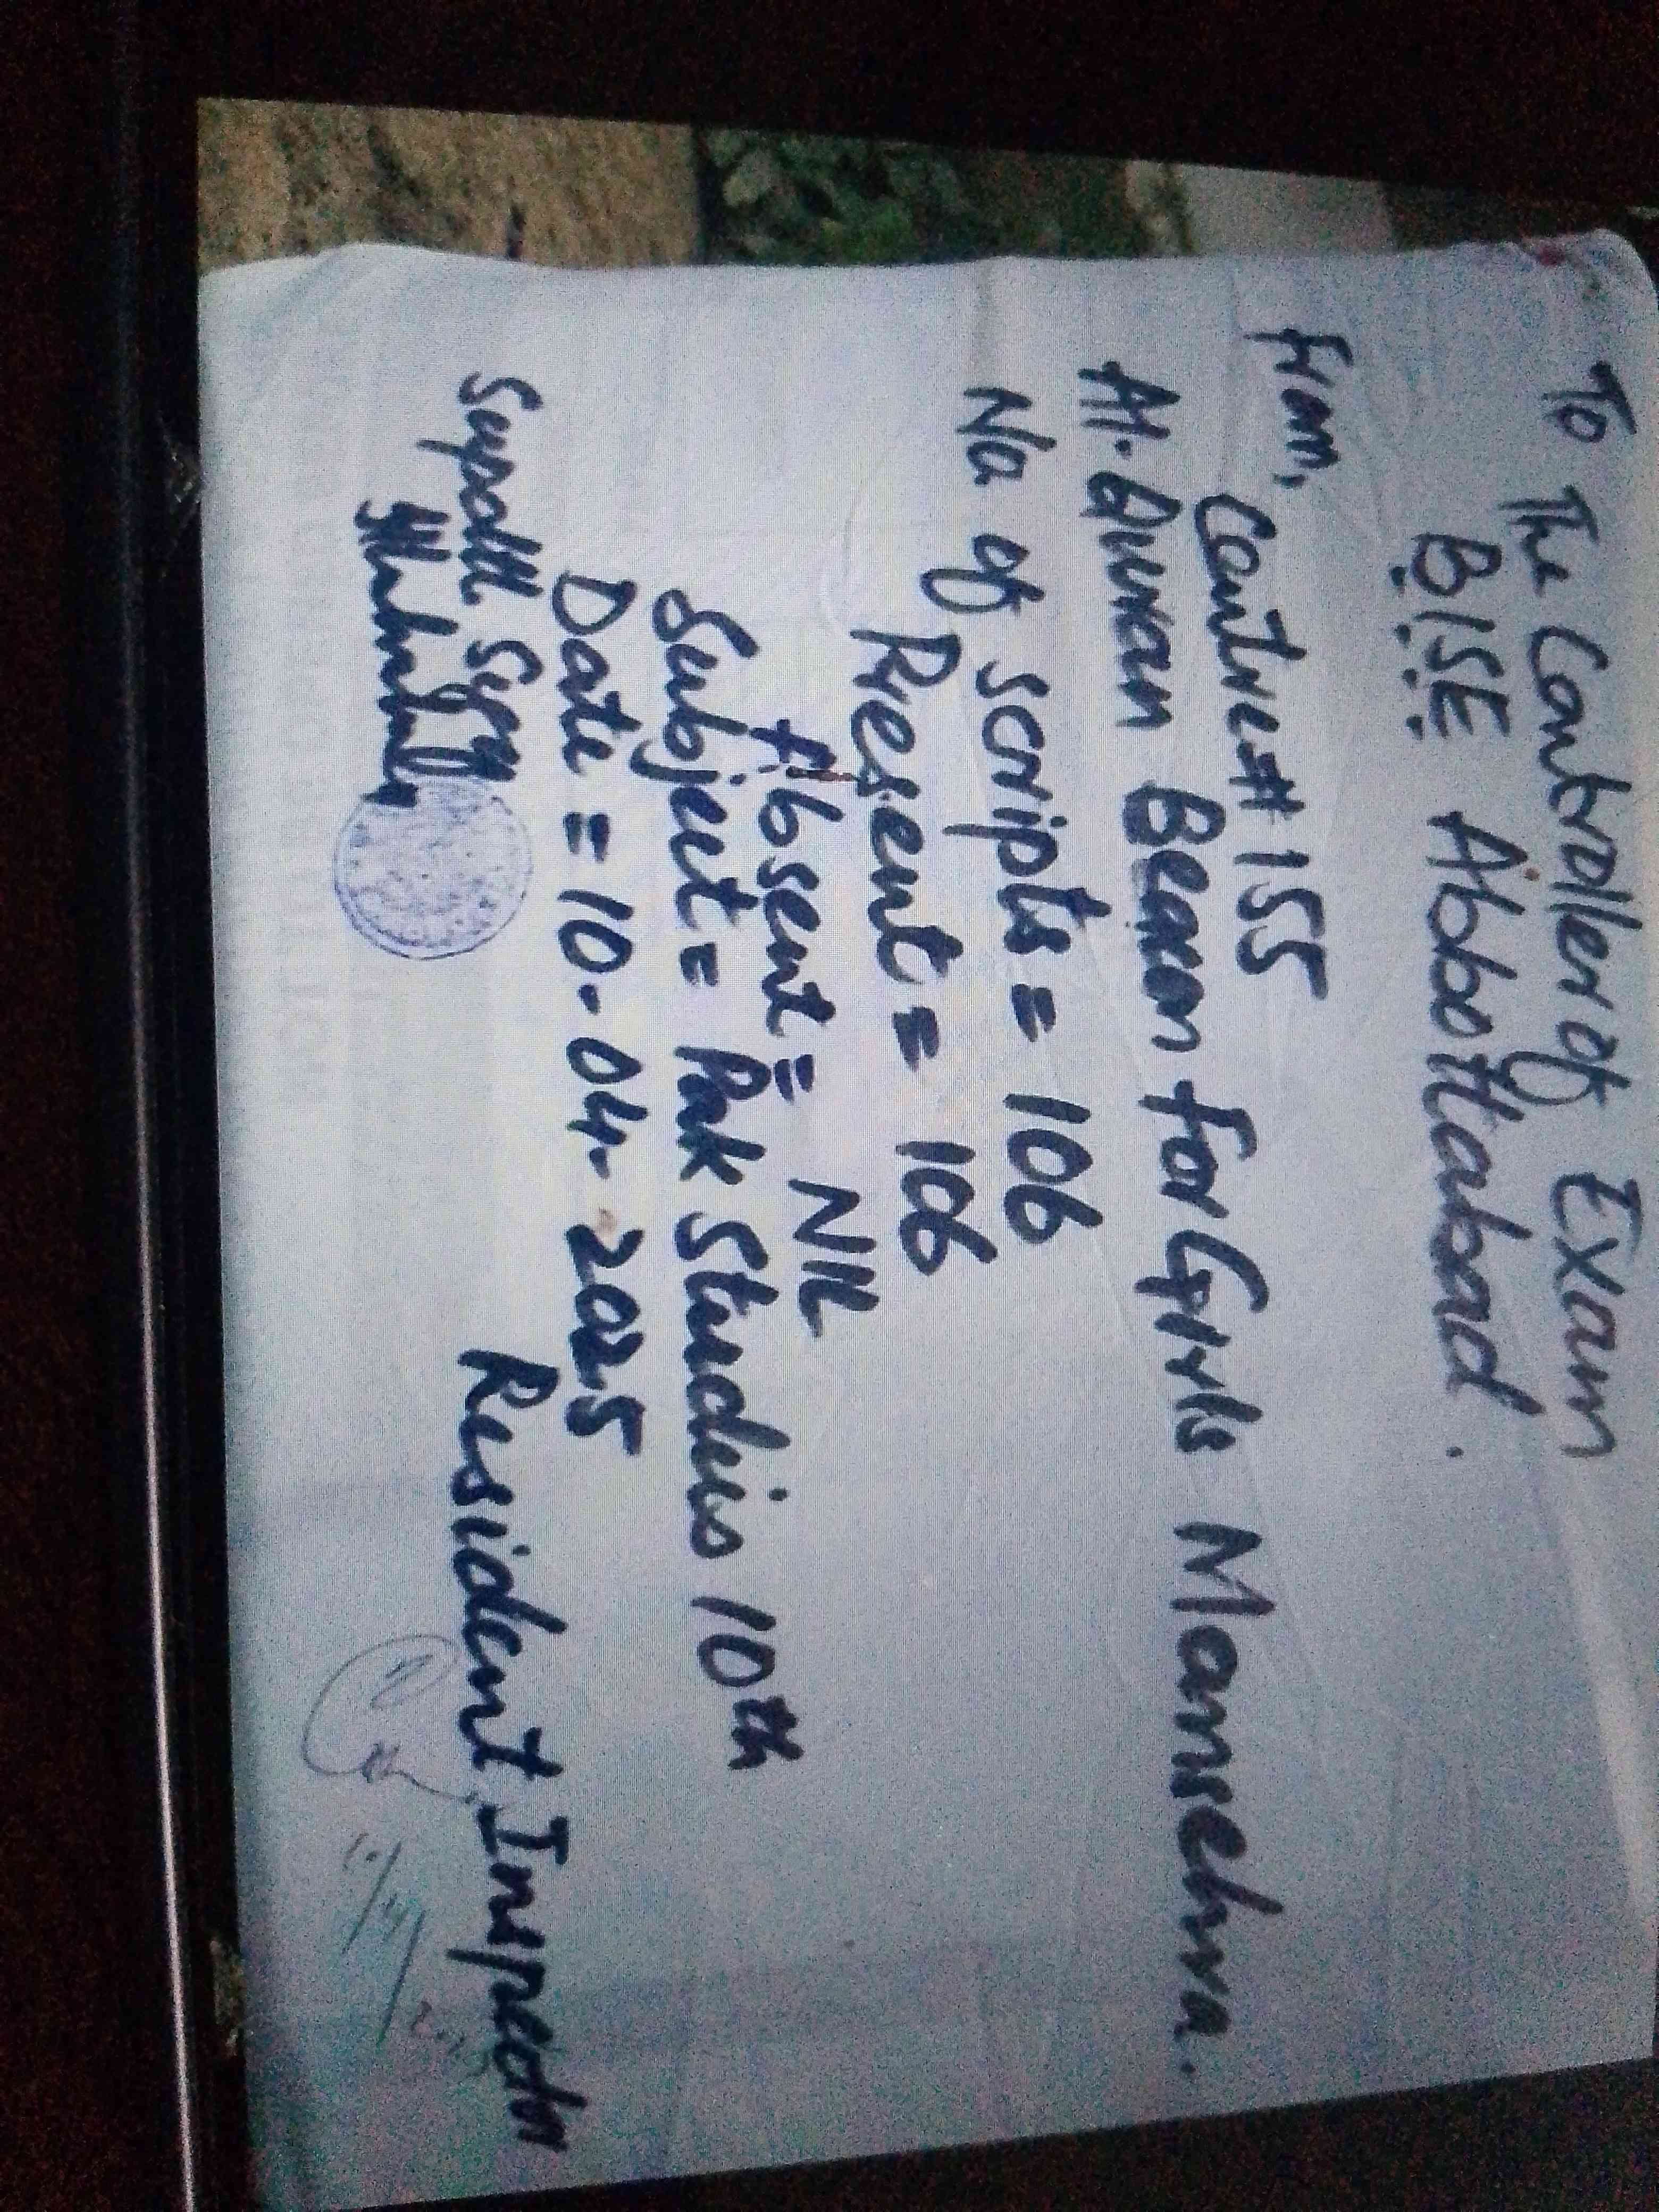 To The Controller of Exam
BISE Abbottabad.
From,
Centre# 155
Al-Quran Beacon for Girls Mansehra.
No of scripts = 106
Present = 106
Absent = NIL
Subject = Pak Studies 10th
Date = 10-04-2025
Supdtt Sign
Resident Inspector